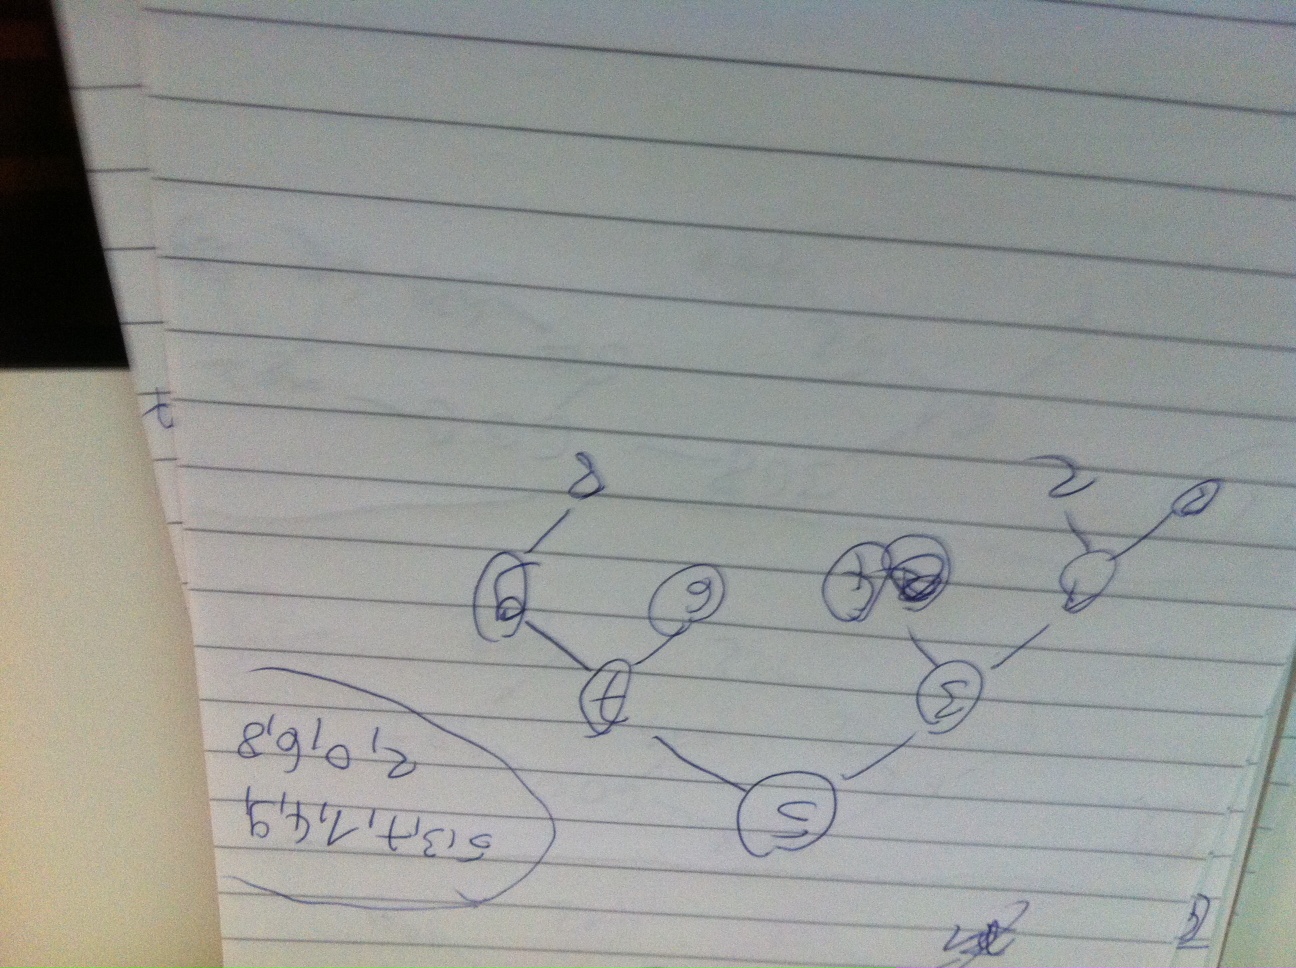 5,3,7,1,4,9,
2,0,6,8
5
3 7
1 4 6 9
0 2 8